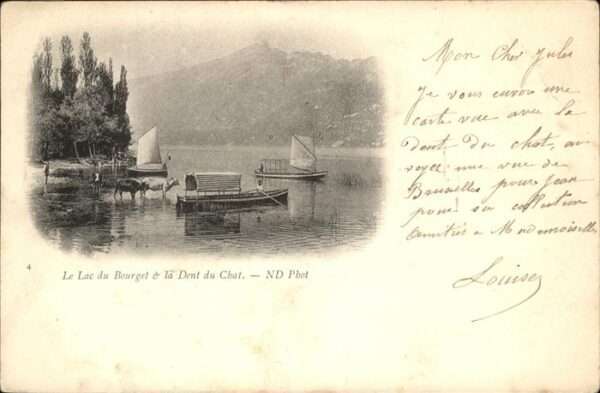 Mon Cher Jules
Je vous envoi une
carte vue avec la
Dent du chat,
voyez une vue de
Bruxelles pour Jean
pour sa collection
Amitiés a Mademoiselle
Louise
4
Le Lac du Bourget & la Dent du Chat. — ND Phot